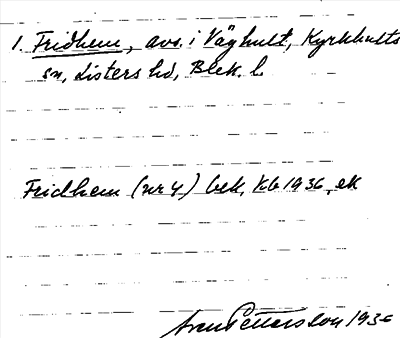 1. Fridhem, avs. i Väghult, Kyrkhults
sn, Listers hd, Blek. l.
Fridhem (nr 4) bek, Kb 1936, ek
Sven Pettersson 1936